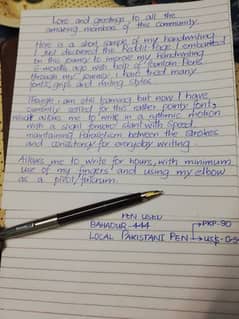 Love and greetings to all the
amazing members of this community.
Here is a short sample of my handwriting
I just discovered this Reddit Page. I embarked
on this journey to improve my handwriting
months ago with help of fountain Pens
through my journey I have tried many
fonts, grips and writing styles
Though I am still learning but now I have
currently settled for this rather pointy font,
which allows me to write in a rythmic motion
with a slight forward slant with speed
maintaining Parallelism between the strokes
and consistency for everyday writing
Allows me to write for hours, with minimum
use of my fingers and using my elbow
as a pivot/fulcrum.
PEN USED
BAHADUR 444 → PKP-90
LOCAL PAKISTANI PEN →